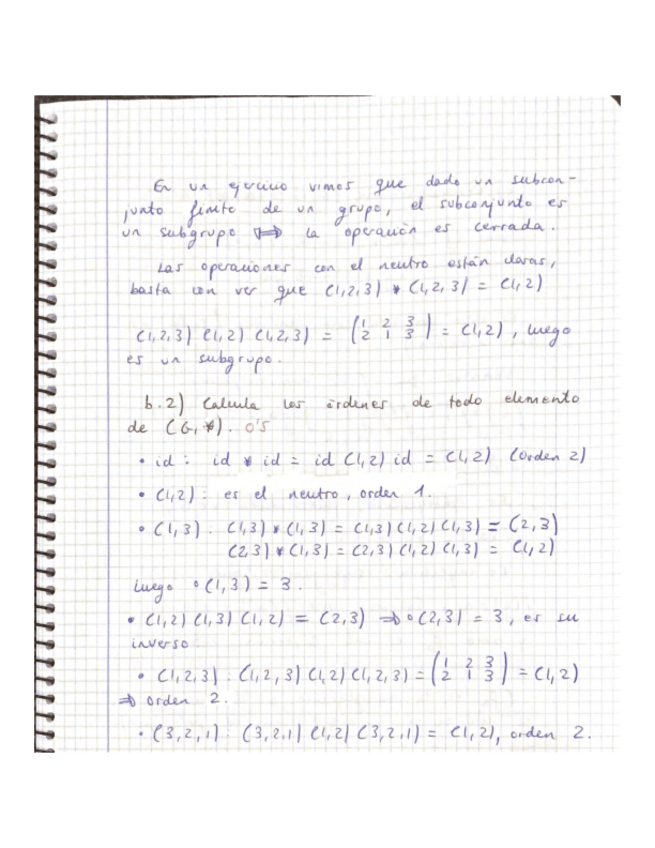 En un ejercicio vimos que dado un subcon-
junto finito de un grupo, el subconjunto es
un subgrupo ⟺ la operación es cerrada.
Las operaciones con el neutro están claras,
basta con ver que (1,2,3) * (1,2,3) = (1,2)
(1,2,3) (1,2) (1,2,3) = (1 2 3 / 2 1 3) = (1,2), luego
es un subgrupo.
b.2) Calcula los órdenes de todo elemento
de (G,*). 0'5
• id : id * id = id (1,2) id = (1,2) (orden 2)
• (1,2) : es el neutro, orden 1.
• (1,3) : (1,3) * (1,3) = (1,3) (1,2) (1,3) = (2,3)
(2,3) * (1,3) = (2,3) (1,2) (1,3) = (1,2)
Luego o(1,3) = 3.
• (1,2) (1,3) (1,2) = (2,3) ⇒ o(2,3) = 3, es su
inverso.
• (1,2,3) : (1,2,3) (1,2) (1,2,3) = (1 2 3 / 2 1 3) = (1,2)
⇒ orden 2.
• (3,2,1) : (3,2,1) (1,2) (3,2,1) = (1,2), orden 2.